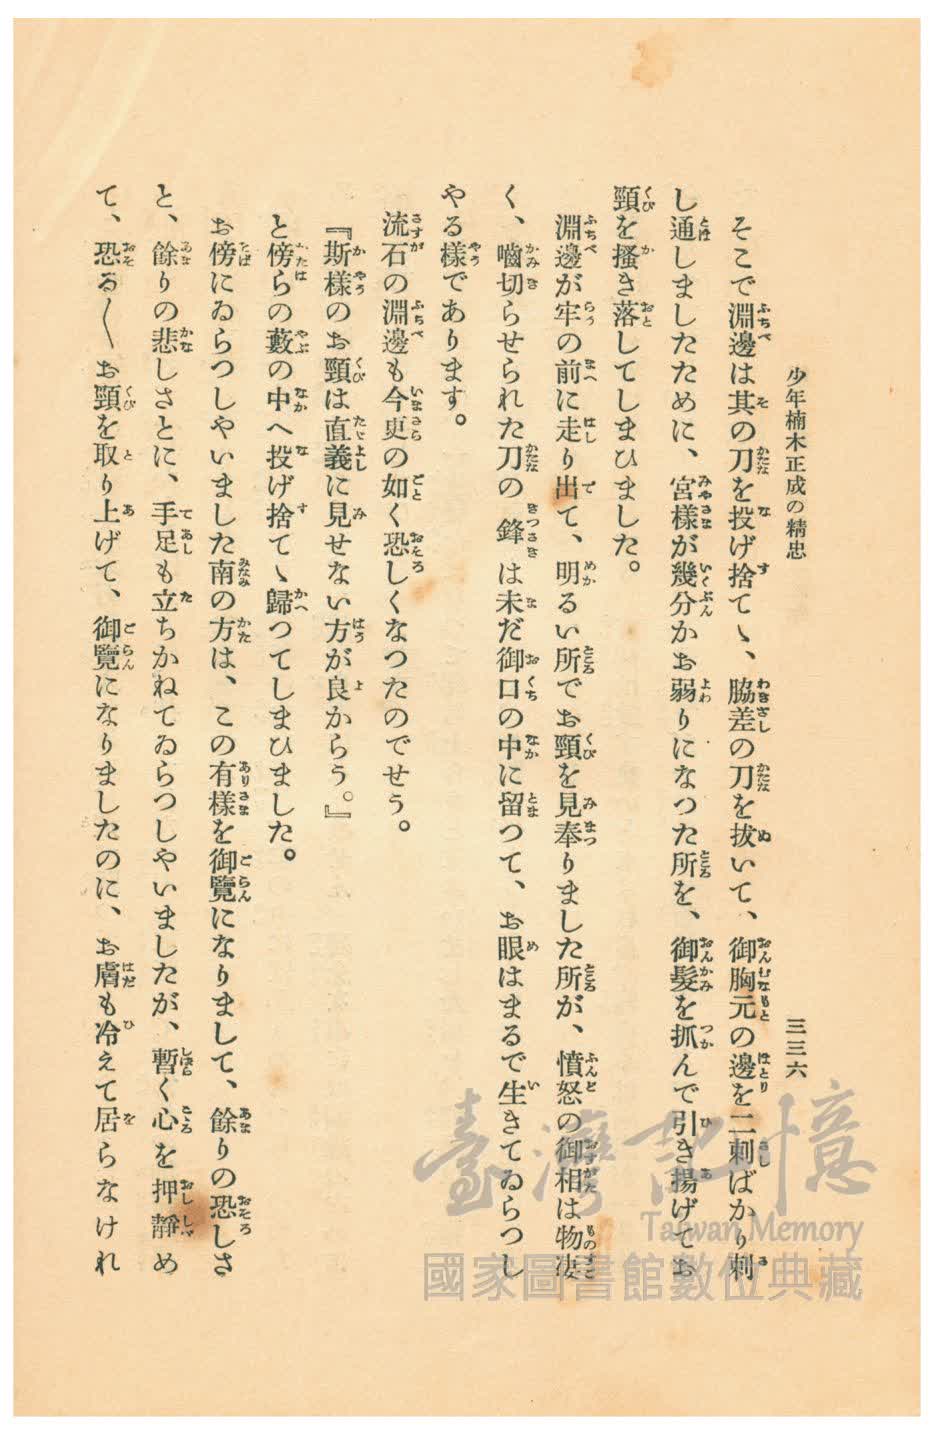 少年楠木正成の精忠
三三六
そこで淵邊は其の刀を投げ捨てゝ、脇差の刀を拔いて、御胸元の邊を二刺ばかり刺
し通しましたために、宮樣が幾分かお弱りになつた所を、御髮を抓んで引き揚げてお
頸を搔き落してしまひました。
淵邊が牢の前に走り出て、明るい所でお頸を見奉りました所が、憤怒の御相は物凄
く、嚙切らせられた刀の鋒は未だ御口の中に留つて、お眼はまるで生きてゐらつし
やる樣であります。
流石の淵邊も今更の如く恐しくなつたのでせう。
『斯樣のお頸は直義に見せない方が良からう。』
と傍らの藪の中へ投げ捨てゝ歸つてしまひました。
お傍にゐらつしやいました南の方は、この有樣を御覽になりまして、餘りの恐しさ
と、餘りの悲しさとに、手足も立ちかねてゐらつしやいましたが、暫く心を押靜め
て、恐る〱お頸を取り上げて、御覽になりましたのに、お膚も冷えて居らなけれ
臺灣記憶
Taiwan Memory
國家圖書館數位典藏